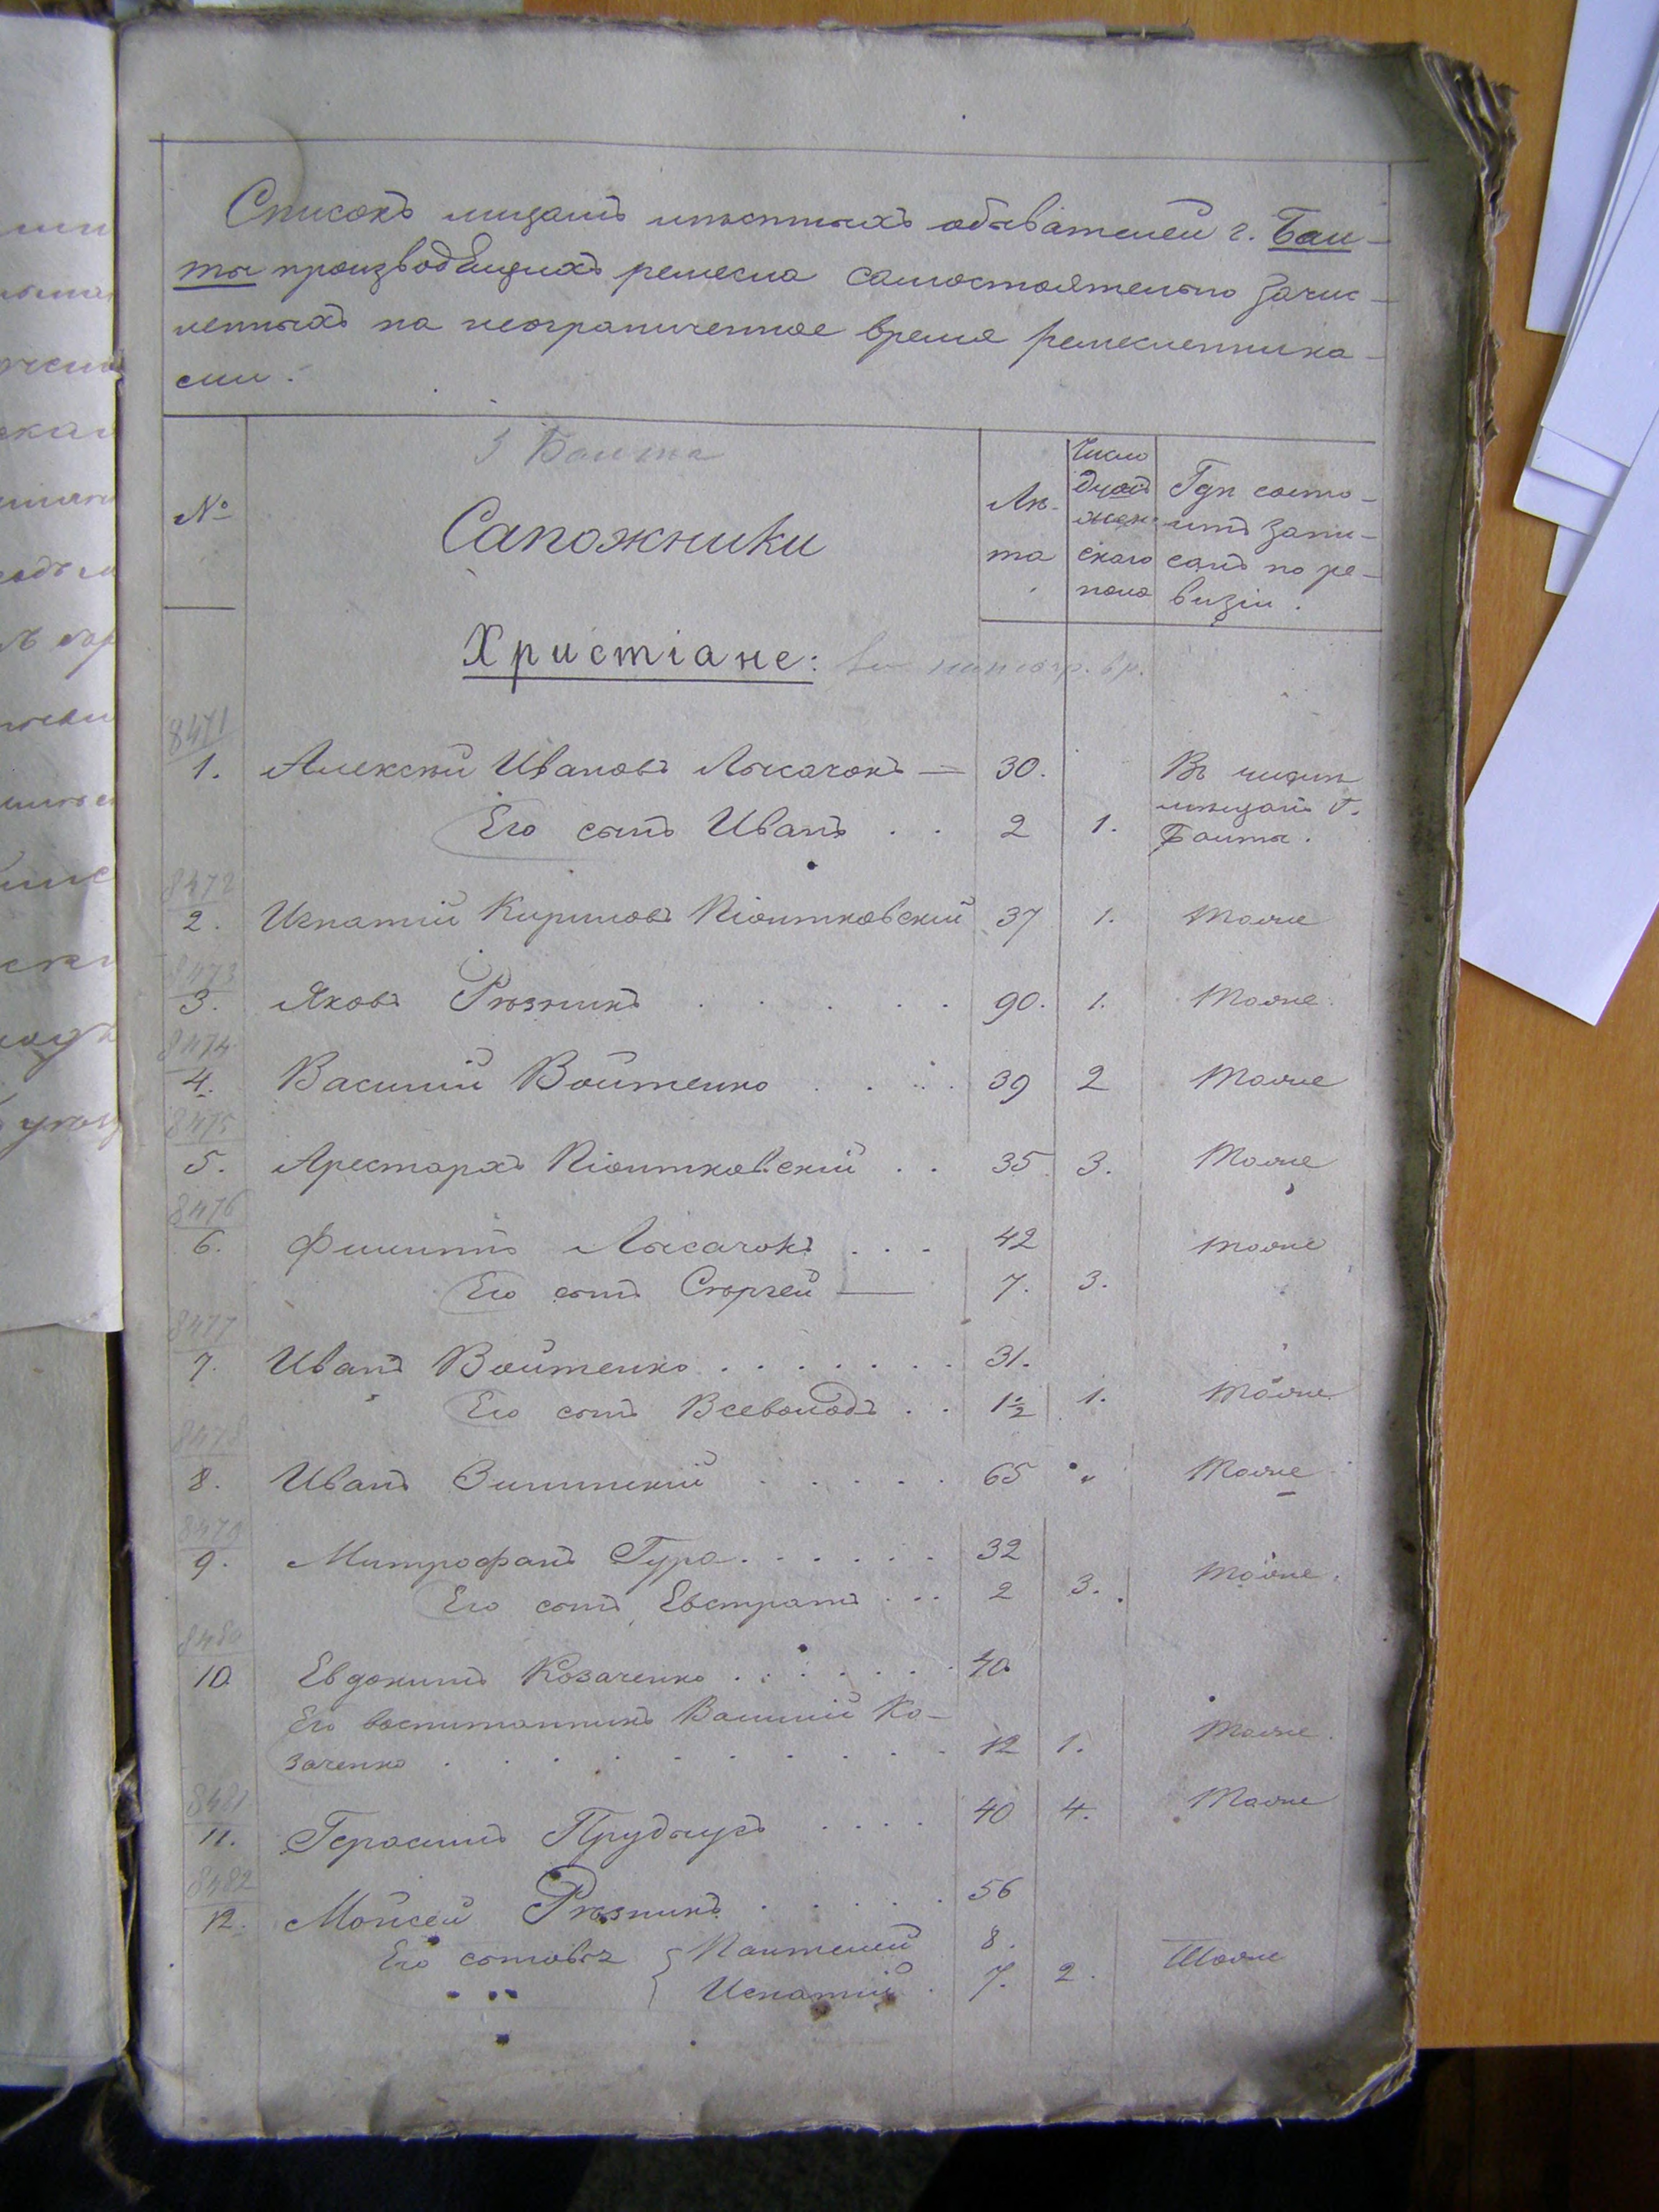 Списокъ лицамъ мѣстныхъ обывателей г. Бал-
ты производящихъ ремесла самостоятельно зачис-
ленныхъ на неограниченное время ремесленника-
ми.
Балта
№
Сапожники
Лѣ-
та
Число
душъ
жен-
скаго
пола
Гдѣ состо-
итъ запи-
санъ по ре-
визіи.
Христіане:
8471
1. Алексѣй Ивановъ Лысачокъ — 30. Въ числѣ
мѣщанъ г.
Балты.
Его сынъ Иванъ . . 2 1.
8472
2. Игнатій Кириловъ Піотковскій 37 1. Тоже
8473
3. Яковъ Рѣзникъ . . . . . 90. 1. Тоже
8474
4. Василій Войтенко . . . . 39 2 Тоже
8475
5. Арестархъ Піотковскій . . 35 3. Тоже
8476
6. Филиппъ Лысачокъ . . . 42 Тоже
Его сынъ Сергей — 7. 3.
8477
7. Иванъ Войтенко . . . . . . . 31.
Его сынъ Всеволодъ . . 1½ 1. Тоже
8478
8. Иванъ . . . . . 65 „ Тоже
8479
9. Митрофанъ Гура . . . . . . 32
Его сынъ Евстратъ . . . 2 3. Тоже.
8480
10 Евдокимъ Козаченко . . . . . . . 40
Его воспитанникъ Василій Ко-
заченко . . . . . . . . . . 12 1. Тоже.
8481
11. Герасимъ . . . . 40 4. Тоже
8482
12. Мойсей Рѣзникъ . . . . . 56
Его сыновья { Пантелей 8.
„ „ Игнатій . 7. 2. Тоже